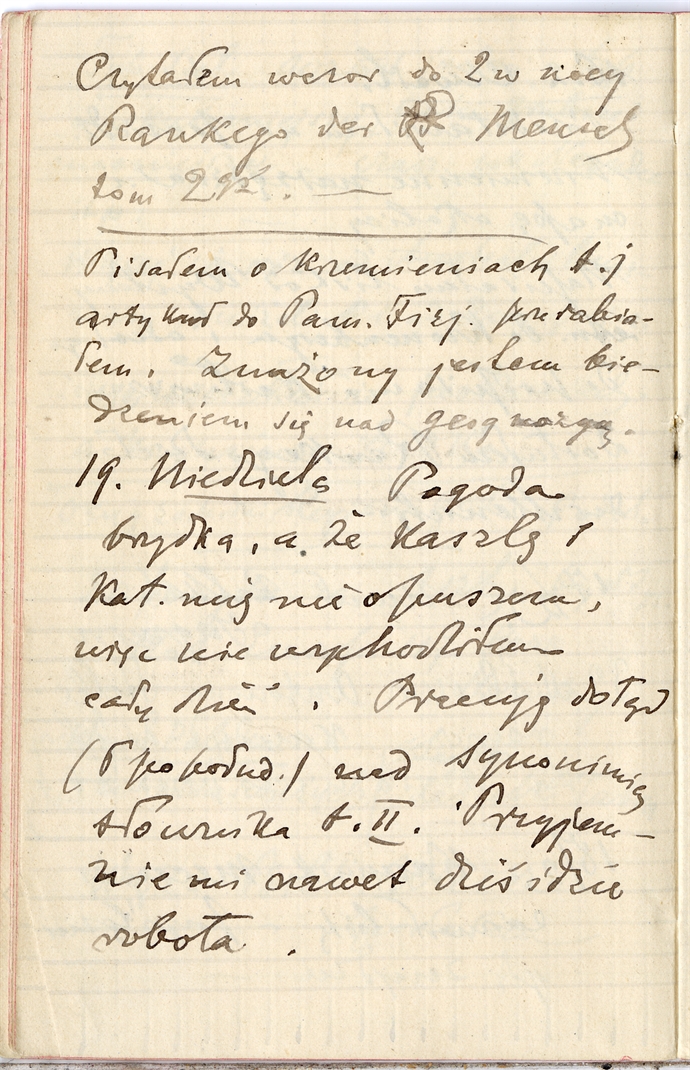 Czytałem wczor do 2 w nocy
Rankego der Mensch
tom 2gi. —
Pisałem o Krzemieniach t.j
artykuł do Pam. Fizj. przerabia-
łem. Znużony jestem bie-
dzeniem się nad geognozyą.
19. Niedziela Pogoda
brydka, a że Kaszlę i
Kat. mię nie opuszcza,
więc nie wychodziłem
cały dzień. Pracuję dotąd
(6 po połud.) nad Synonimią
słownika t. II. Przyjem-
nie mi nawet dziś idzie
robota.